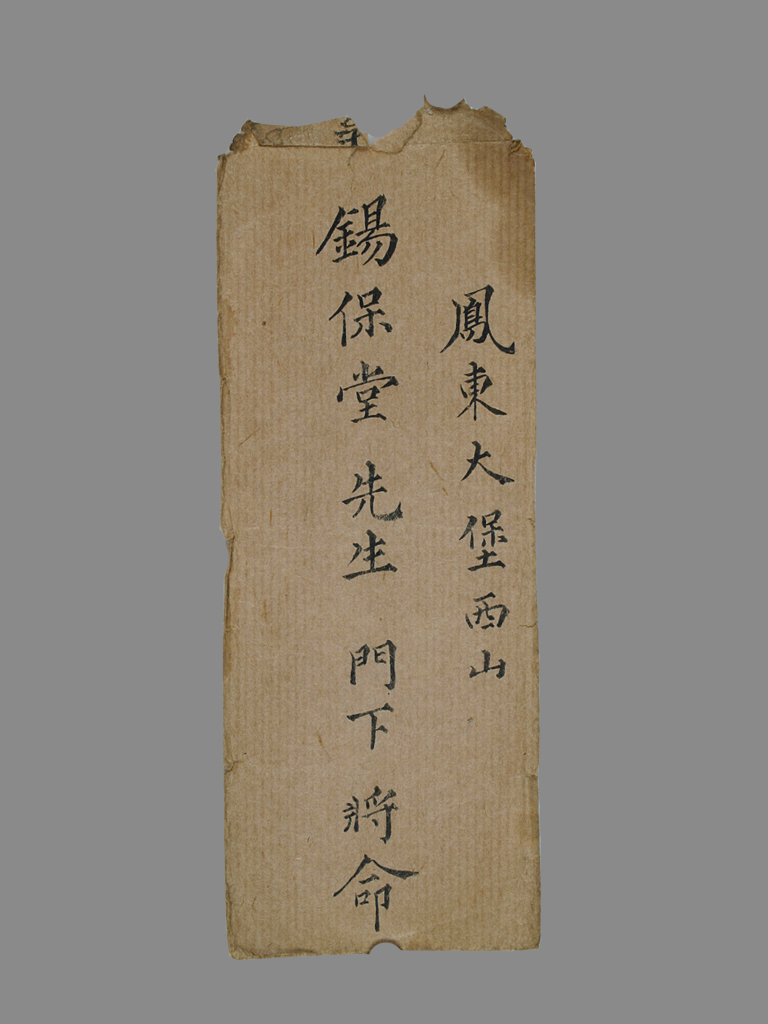 鳳東大堡西山
錫保堂先生門下將命